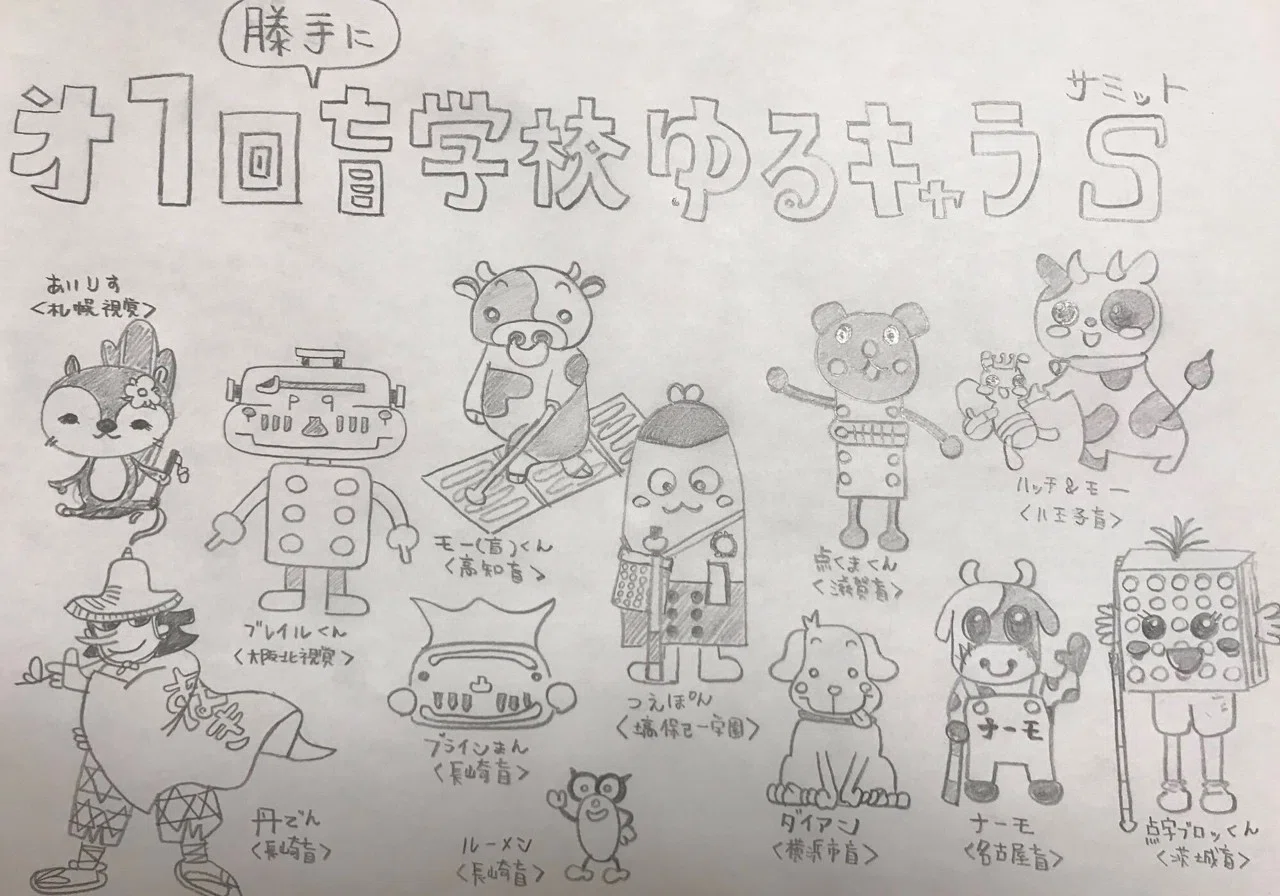 勝手に
第1回盲学校ゆるキャラS
サミット
あいりす
<札幌視覚>
ブレイルくん
<大阪北視覚>
モー(盲)くん
<高知盲>
つえぽん
<塙保己一学園>
点くまくん
<滋賀盲>
ハッチ&モー
<八王子盲>
丹でん
<長崎盲>
ブラインまん
<長崎盲>
ルーメン
<長崎盲>
ダイアン
<横浜市盲>
ナーモ
ナーモ
<名古屋盲>
点字ブロッくん
<茨城盲>